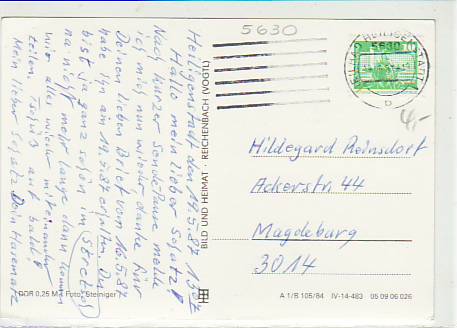 5630
HEILIGENSTADT
5630
10
D
4,-
Heiligenstadt den 19.5.87 1500
Hallo mein lieber Schatz!
Nach kurzer Sendepause melde
ich mich nun wieder, danke für
Deinen lieben Brief vom 16.5.87
habe ihn am 19.5.87 erhalten. Du
bist ja ganz schön im Streß
na nicht mehr lange dann können
wir alles wieder miteinander
teilen. Tschüß auf bald!
Mein lieber Schatz Dein
BILD UND HEIMAT · REICHENBACH (VOGTL)
Hildegard Reinsdorf
Ackerstr. 44
Magdeburg
3014
DDR 0,25 M · Foto: Steiniger
A 1/B 105/84 IV-14-483 05 09 06 026